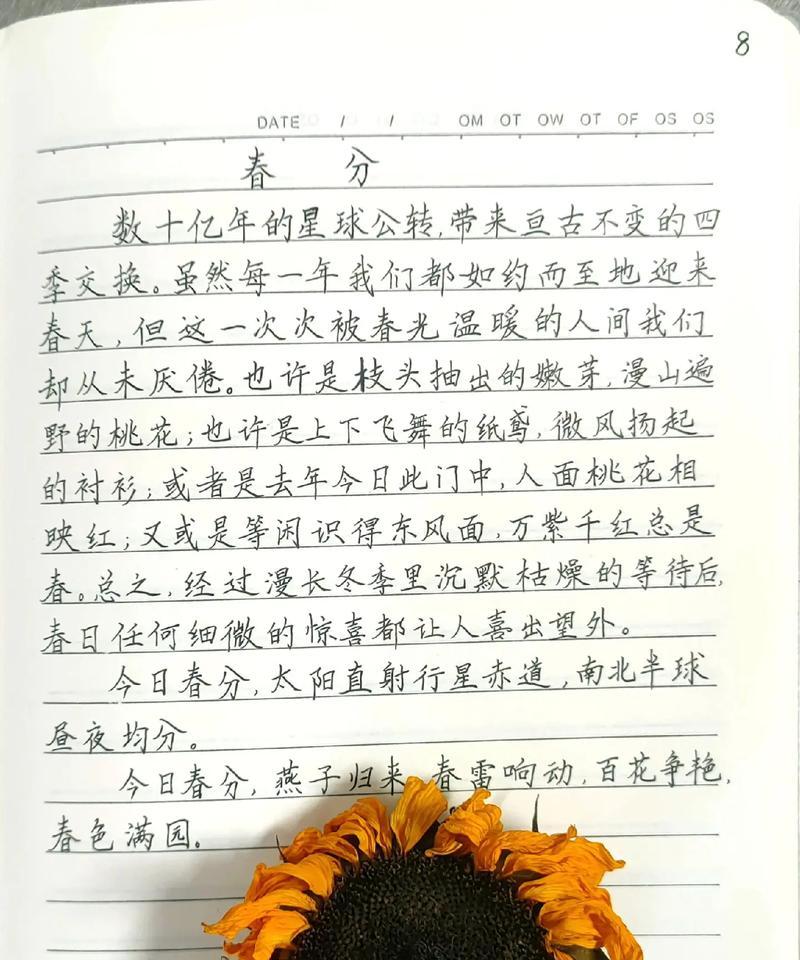 8
DATE / / OM OT OW OT OF OS OS
春 分
数十亿年的星球公转,带来亘古不变的四
季交换。虽然每一年我们都如约而至地迎来
春天,但这一次次被春光温暖的人间我们
却从未厌倦。也许是枝头抽出的嫩芽,漫山遍
野的桃花;也许是上下飞舞的纸鸢,微风扬起
的衬衫;或者是去年今日此门中,人面桃花相
映红;又或是等闲识得东风面,万紫千红总是
春。总之,经过漫长冬季里沉默枯燥的等待后,
春日任何细微的惊喜都让人喜出望外。
今日春分,太阳直射行星赤道,南北半球
昼夜均分。
今日春分,燕子归来 春雷响动,百花争艳,
春色满园。